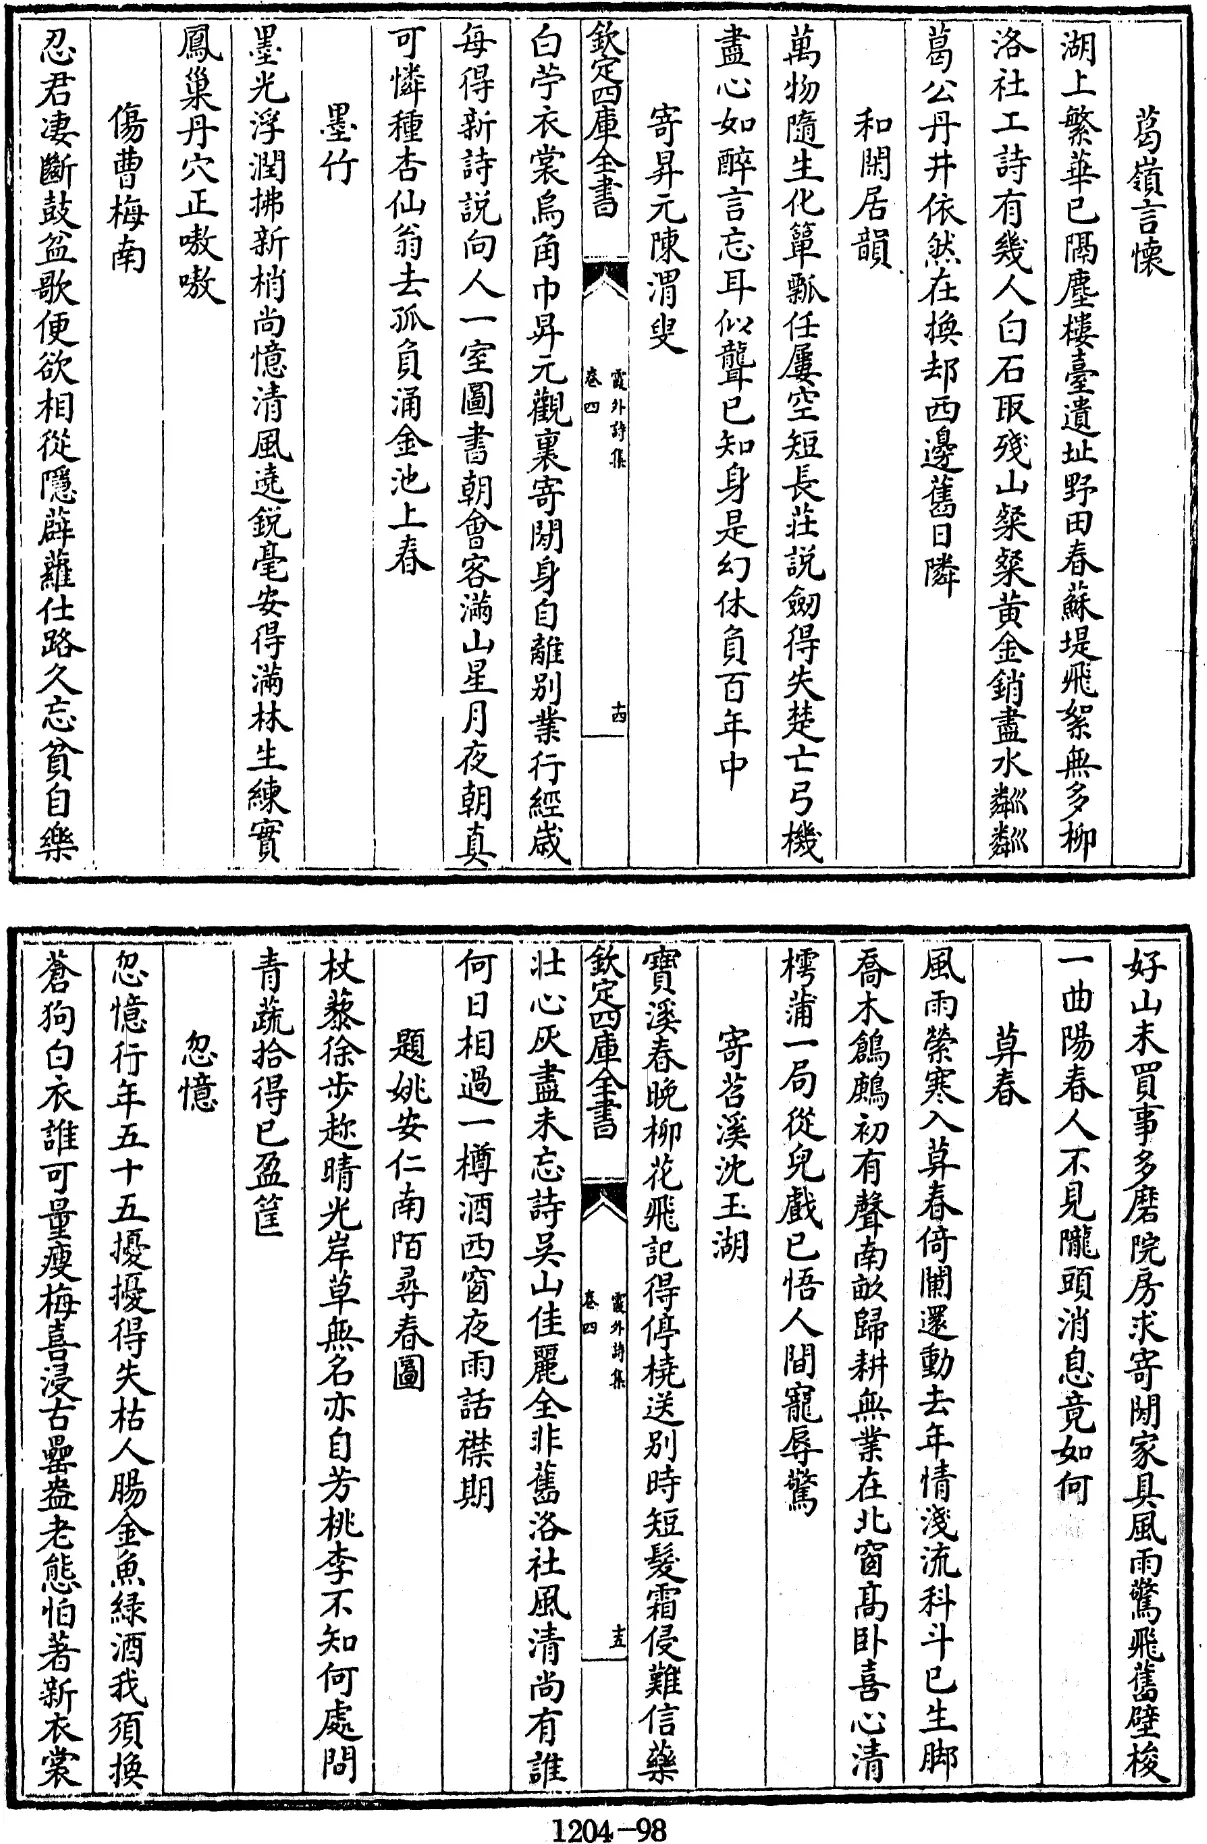 葛嶺言懷
湖上繁華已隔塵樓臺遺址野田春蘇堤飛絮無多柳
洛社工詩有幾人白石取殘山粲粲黄金銷盡水粼粼
葛公丹井依然在換却西邊舊日隣
和閑居韻
萬物隨生化簞瓢任屢空短長莊説劒得失楚亡弓機
盡心如醉言忘耳似聾已知身是幻休負百年中
寄昇元陳渭叟
欽定四庫全書
霞外詩集
卷四
十四
白苧衣裳烏角巾昇元觀裏寄閒身自離别業行經歳
每得新詩説向人一室圖書朝會客滿山星月夜朝真
可憐種杏仙翁去孤負涌金池上春
墨竹
墨光浮潤拂新梢尚憶清風遶鋭毫安得滿林生練實
鳳巢丹穴正嗷嗷
傷曹梅南
忍君凄斷鼓盆歌便欲相從隱薜蘿仕路久忘貧自樂
好山未買事多磨院房求寄閒家具風雨驚飛舊壁梭
一曲陽春人不見隴頭消息竟如何
莫春
風雨縈寒入莫春倚闌還動去年情淺流科斗已生脚
喬木鶬鶊初有聲南畝歸耕無業在北窗髙卧喜心清
樗蒲一局從兒戲已悟人間寵辱驚
寄苕溪沈玉湖
寶溪春晚柳花飛記得停橈送别時短髮霜侵難信藥
欽定四庫全書
霞外詩集
卷四
十五
壯心灰盡未忘詩吳山佳麗全非舊洛社風清尚有誰
何日相過一樽酒西窗夜雨話襟期
題姚安仁南陌尋春圖
杖藜徐步趂晴光岸草無名亦自芳桃李不知何處問
青蔬拾得已盈筐
忽憶
忽憶行年五十五擾擾得失枯人腸金魚緑酒我須換
蒼狗白衣誰可量瘦梅喜浸古罍盎老態怕著新衣裳
1204-98